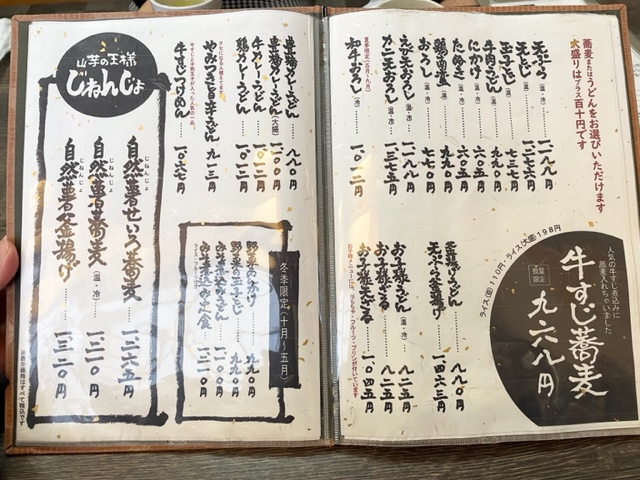 蕎麦またはうどんをお選びいただけます
大盛りはプラス百十円です
天ぷら(温・冷)……一二八八円
天とじ……一二七六円
玉子とじ……七三七円
牛肉うどん……九九〇円
にかけ(温・冷)……六〇五円
たぬき(温・冷)……六〇五円
鶏南蛮(温・冷)……九九〇円
おろし(温・冷)……七七〇円
えび天おろし(温・冷)……一三七五円
カニ天おろし(温・冷)……一三七五円
夏季限定(五月〜九月)
和牛おろし……一〇一二円
釜揚げうどん……八八〇円
天ぷら釜揚げ……一四六三円
お子様うどん(温・冷)……八二五円
お子様そば……八二五円
お子様天ざる……一〇四五円
ライス(並)110円・ライス(大盛)198円
人気の牛すじ煮込みに
蕎麦入れちゃいました
数量限定
牛すじ蕎麦
九六八円
豊橋カレーうどん……八八〇円
豊橋カレーうどん(大盛)……一一〇〇円
牛カレーうどん……一〇一二円
鶏カレーうどん……一〇一二円
やみつき旨辛うどん……九一三円
牛すじつけめん……一〇六七円
冬季限定(十月〜五月)
野菜の玉子とじ……九九〇円
みそ煮込み……九九〇円
みそ煮込み定食……一二一〇円
山芋の王様
じねんじょ
自然薯せいろ蕎麦……一三六五円
自然薯蕎麦(温・冷)……一三二〇円
自然薯釜揚げ……一三二〇円
※表示価格はすべて税込です